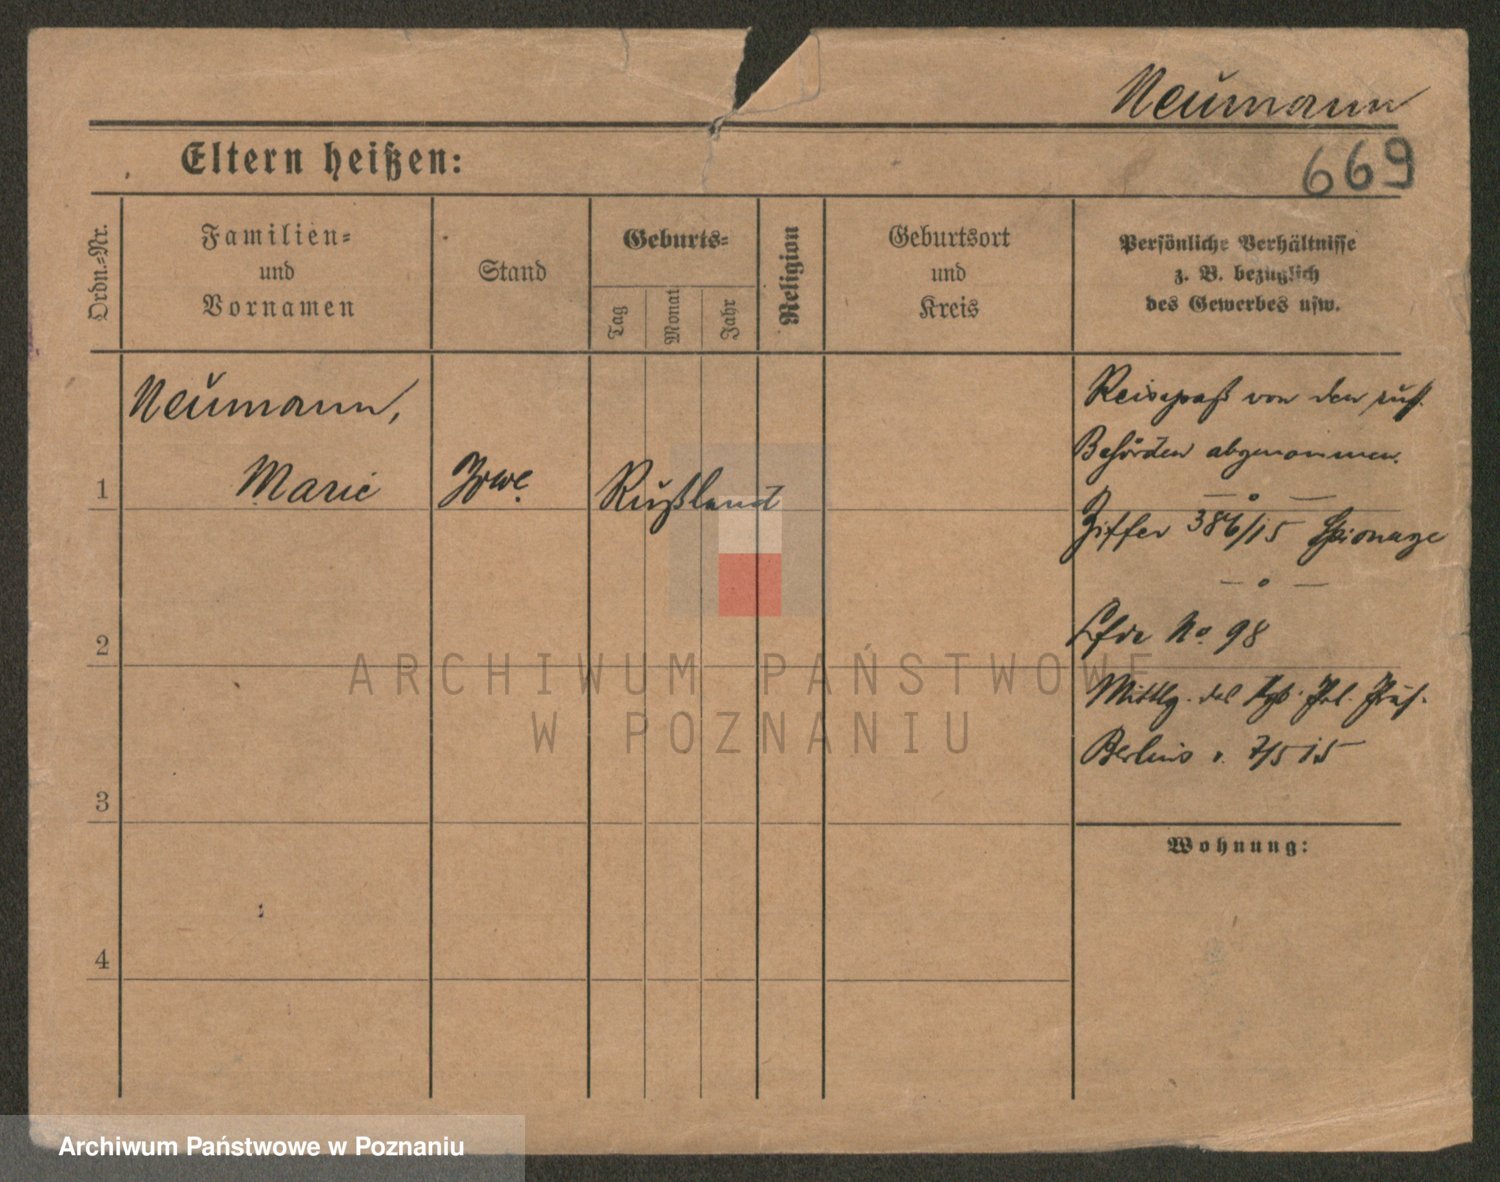 Neumann
Eltern heißen:
669
Ordn.-Nr.
Familien-
und
Vornamen
Stand
Geburts-
Tag
Monat
Jahr
Religion
Geburtsort
und
Kreis
Persönliche Verhältnisse
z. B. bezüglich
des Gewerbes usw.
Neumann,
Marie
Wwe.
Rußland
1
2
3
4
Reisepaß von den russ.
Behörden abgenommen.
Ziffer 386/15 Spionage
Lfde No. 98
Mittlg. des Kgl. Pol. Präs.
Berlins v. 7/5 15
Wohnung:
ARCHIWUM PAŃSTWOWE
W POZNANIU
Archiwum Państwowe w Poznaniu